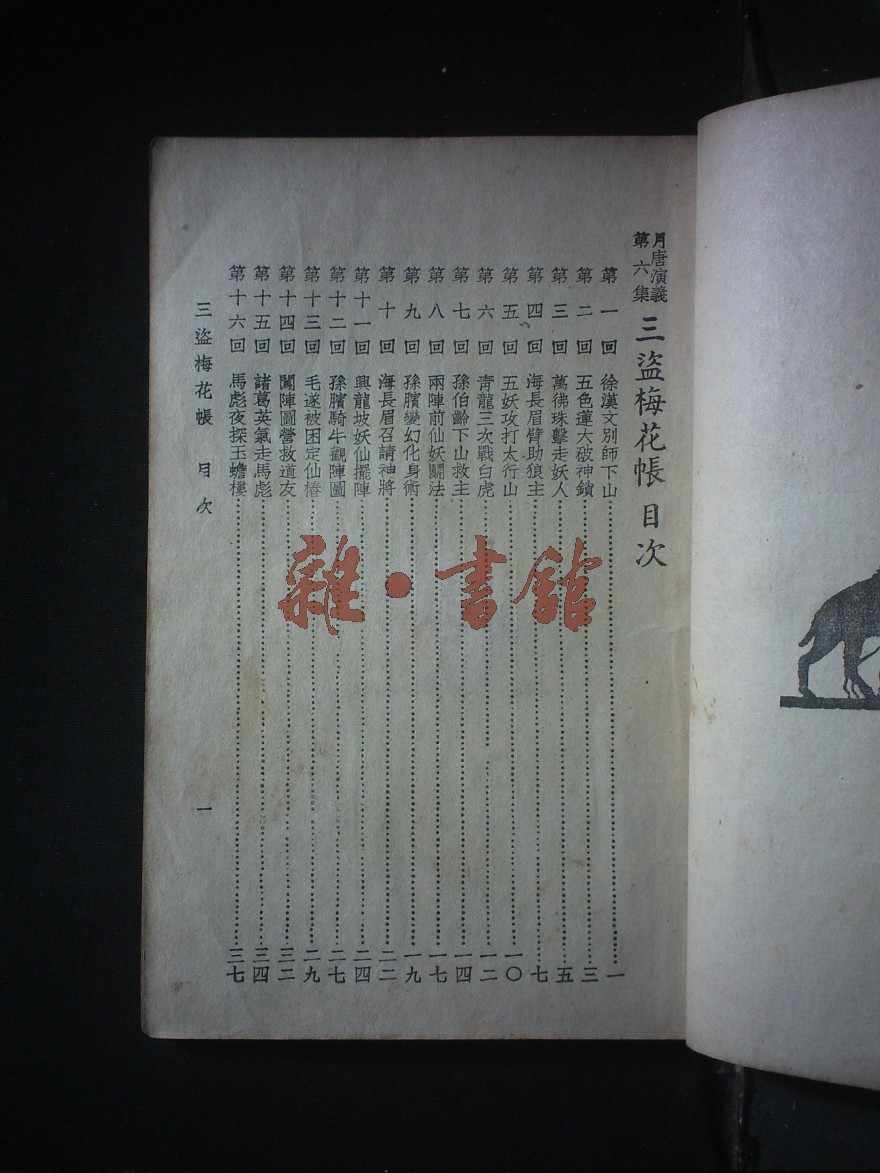 月唐演義
第六集
三盜梅花帳 目次
第一回 徐漢文別師下山 一
第二回 五色蓮大破神鎖 三
第三回 萬彿珠擊走妖人 五
第四回 海長眉臂助狼主 七
第五回 五妖攻打太行山 一〇
第六回 青龍三次戰白虎 一二
第七回 孫伯齡下山救主 一四
第八回 兩陣前仙妖鬭法 一七
第九回 孫臏變幻化身術 一九
第十回 海長眉召請神將 二二
第十一回 興龍坡妖仙擺陣 二四
第十二回 孫臏騎牛觀陣圖 二七
第十三回 毛遂被困定仙樁 二九
第十四回 闖陣圖營救道友 三二
第十五回 諸葛英氣走馬彪 三四
第十六回 馬彪夜探玉蟾樓 三七
三盜梅花帳 目次
一
雜·書館